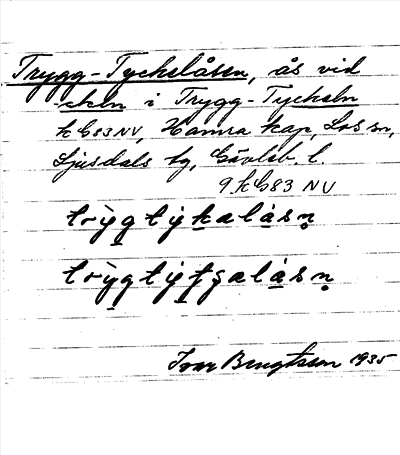 Trygg-Tyckelåsen, ås vid
-ckeln i Trygg-Tyckeln
k G83 NV, Hamra kap, Los sn,
Ljusdals tg, Gävleb. l.
9 k G83 NV
trỳgtýkalåsn̥
trỳgtýtʂalåsn̥
Ivar Bengtsson 1935